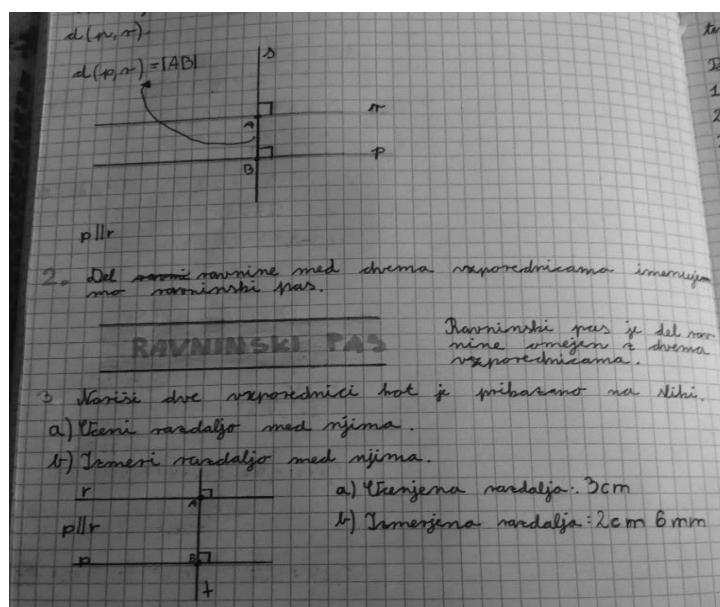 d(p,r).
d(p,r)=|AB|
s
A
r
B
p
p||r
2. Del ravnine med dvema vzporednicama imenuje
mo ravninski pas.
RAVNINSKI PAS
Ravninski pas je del rav
nine omejen z dvema
vzporednicama.
3 Nariši dve vzporednici kot je prikazano na sliki.
a) Oceni razdaljo med njima.
b) Izmeri razdaljo med njima.
r
A
p||r
p
B
t
a) Ocenjena razdalja: 3cm
b) Izmerjena razdalja: 2cm 6mm
1
2